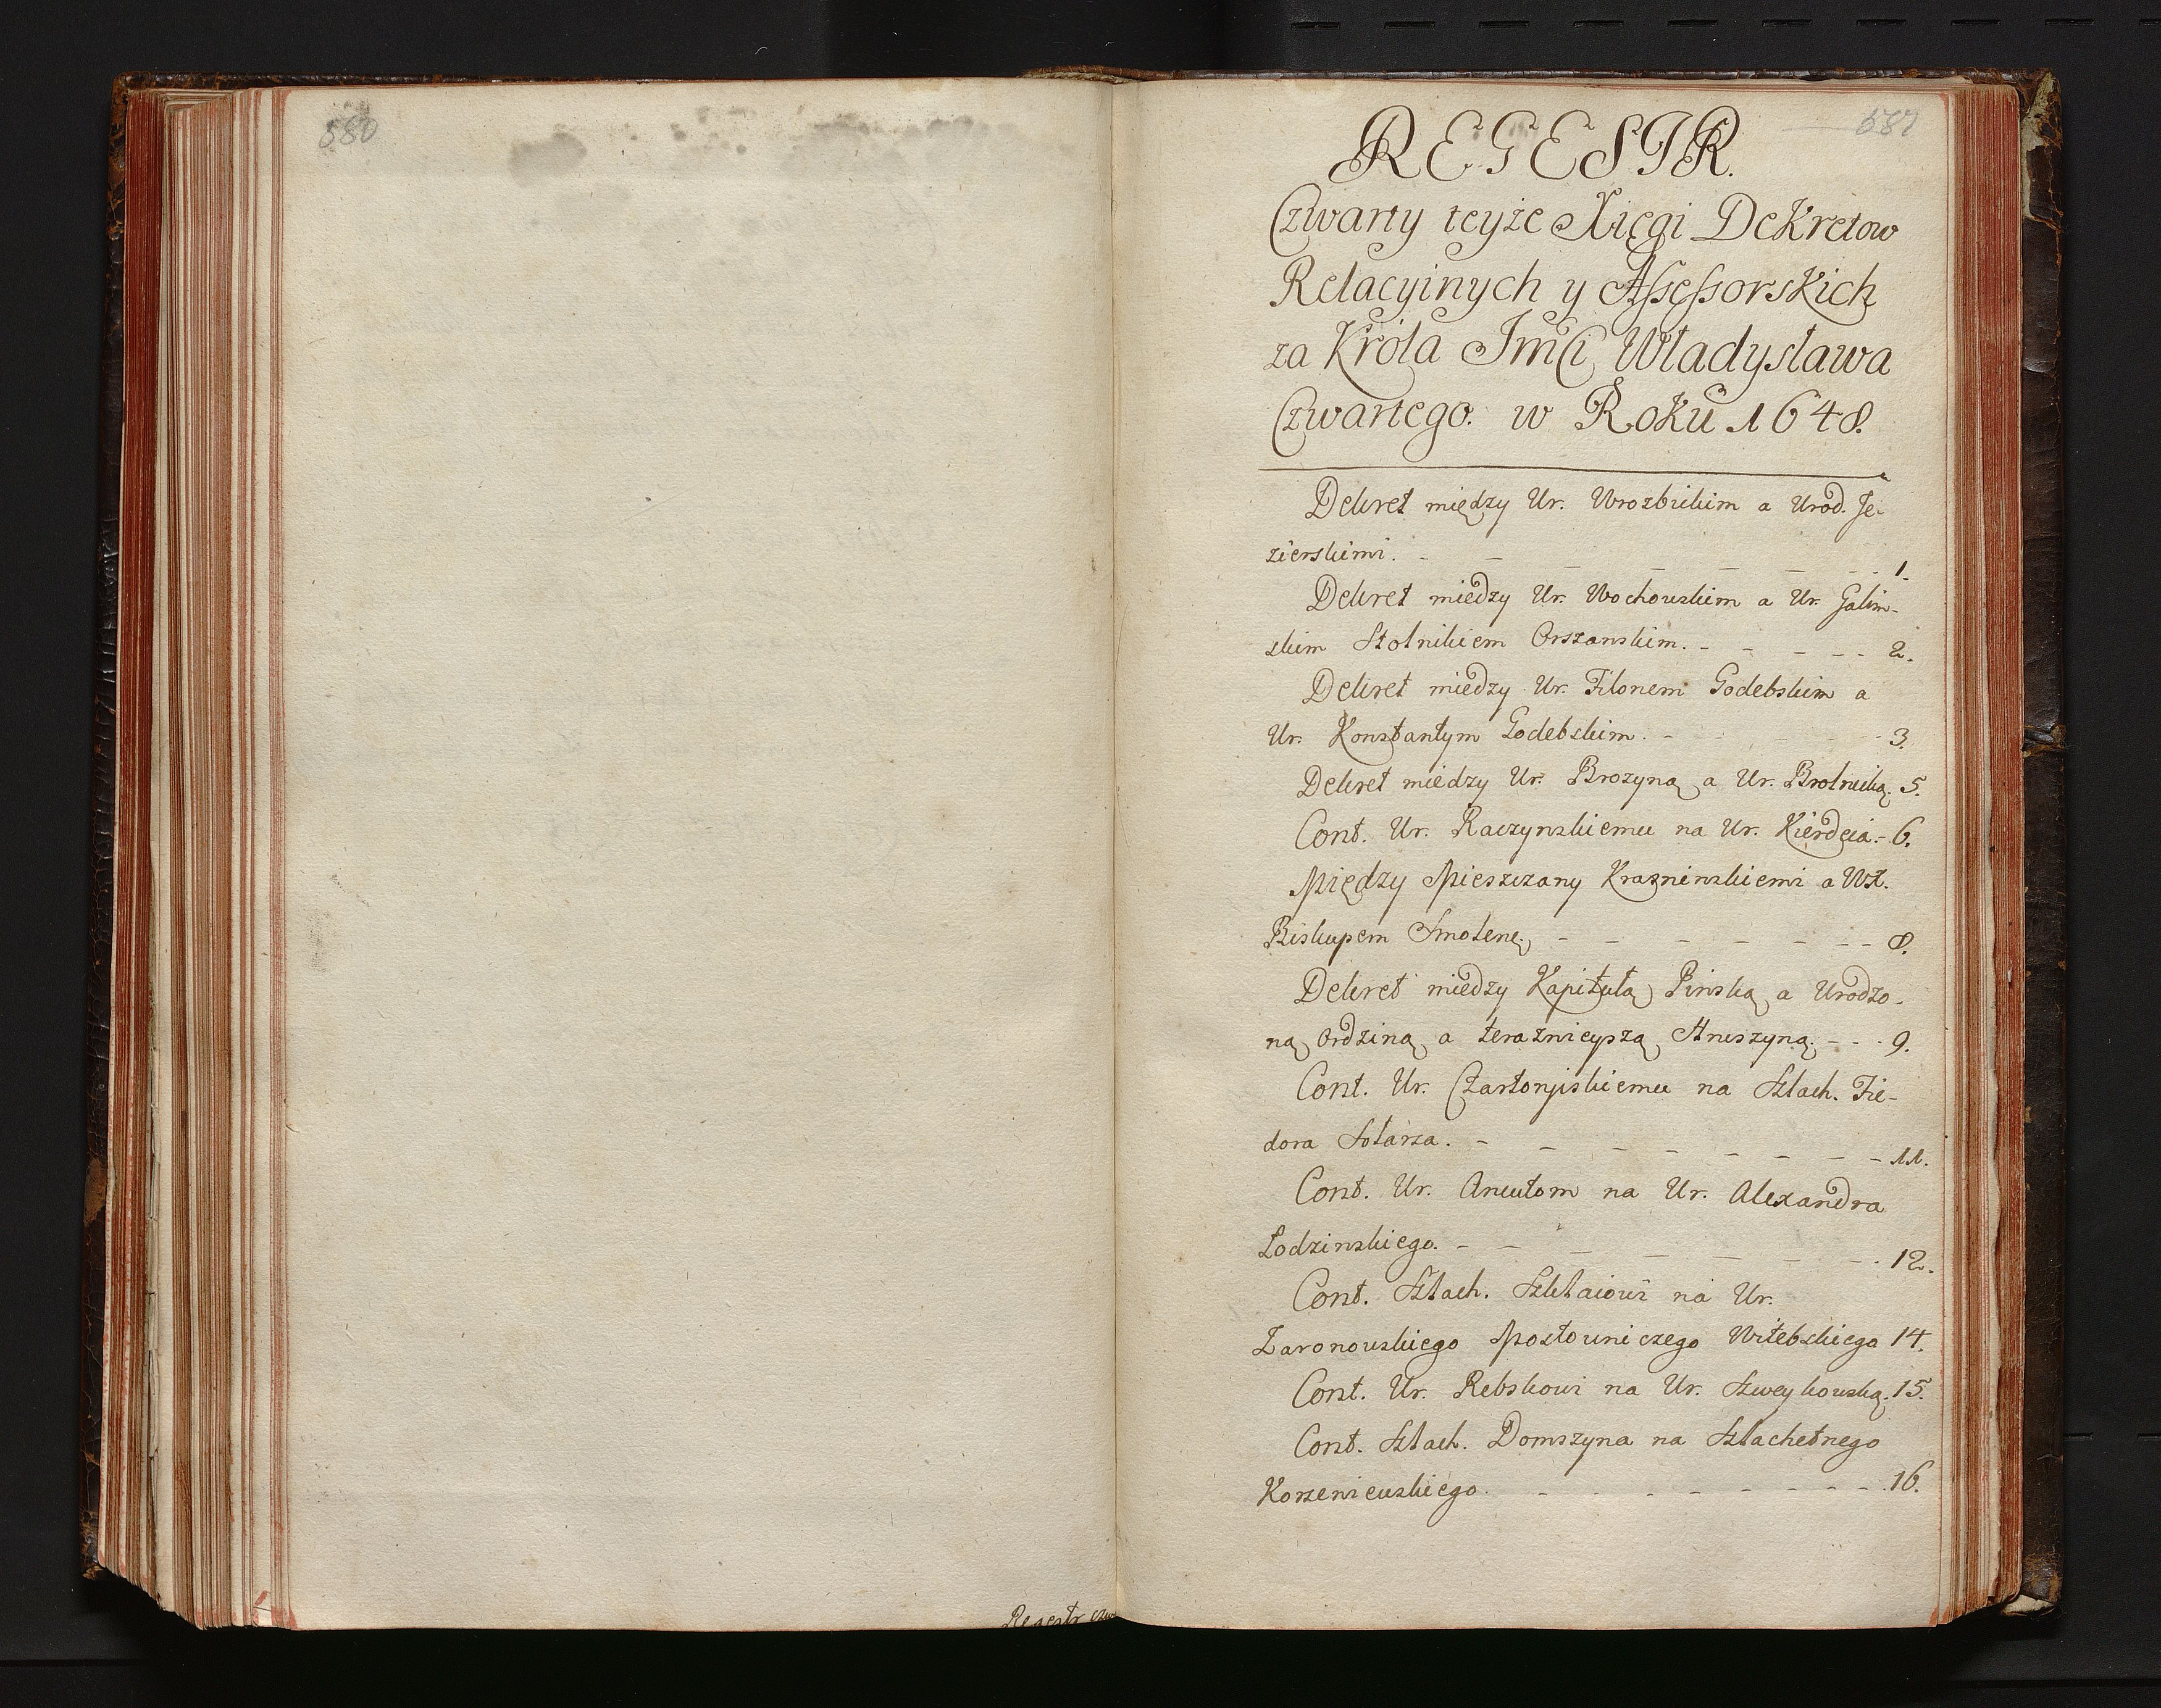 580
Regestr
587
REGESTR.
Czwarty teyże Xięgi Dekretow
Relacyinych y Assessorskich
za Króla JmCi Władysława
Czwartego. w Roku 1648.
Dekret między Ur. Wrozbickim a Urod. Je-
zierskimi. 1.
Dekret miedzy Ur. Wochowskim a Ur. Galim-
skim Stolnikiem Orszanskim. 2.
Dekret miedzy Ur. Filonem Godebskim a
Ur. Konstantym Godebskim. 3.
Dekret miedzy Ur. Brozyną a Ur. Brolnicką. 5.
Cont. Ur. Raczynskiemu na Ur. Kierdeia. 6.
Między Mieszczany Krasninskiemi a WX.
Biskupem Smolenę. 8.
Dekret miedzy Kapitułą Pinską a Urodzo-
ną Ordziną a teraznieyszą Hruszyną. 9.
Cont. Ur. Czartoryiskiemu na Szlach. Fie-
dora Stolarza. 11.
Cont. Ur. Ancutom na Ur. Alexandra
Łodzinskiego. 12.
Cont. Szlach. na Ur.
Zaronowskiego Mostowniczego Witebskiego 14.
Cont. Ur. Rebskowi na Ur. Szweykowską. 15.
Cont. Szlach. Domszyna na Szlachetnego
Korzeniewskiego. 16.